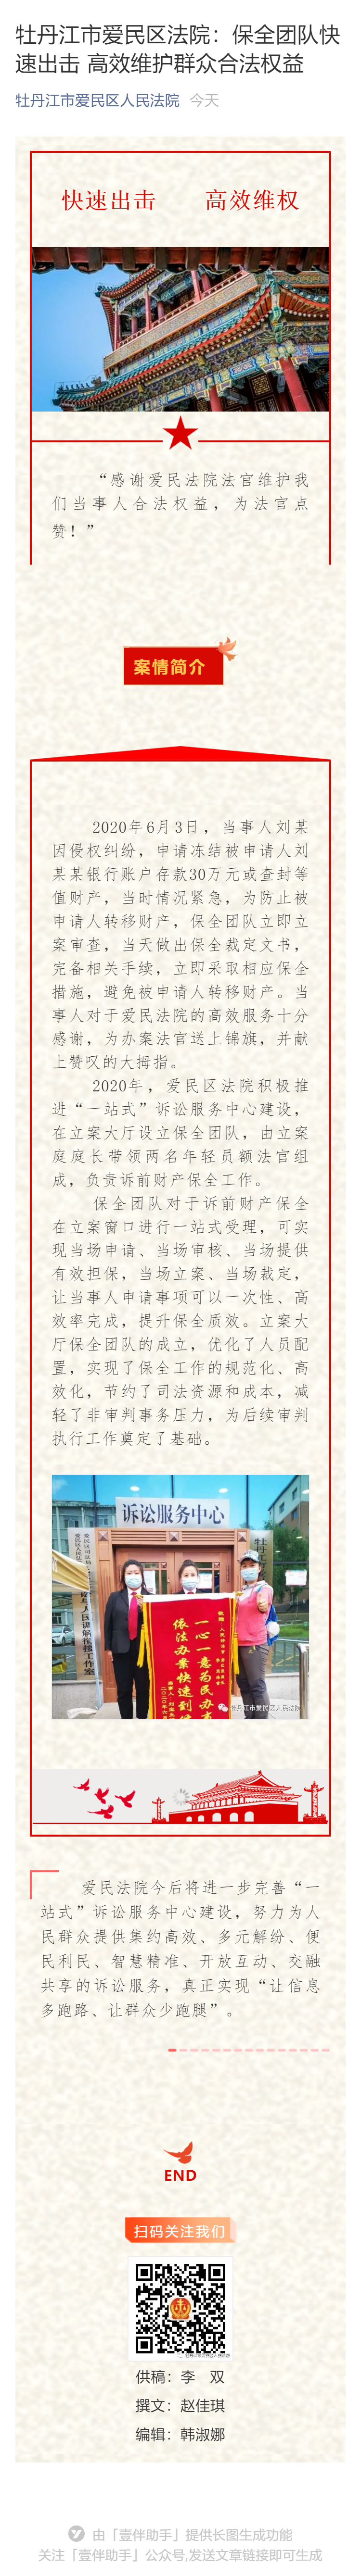 牡丹江市爱民区法院：保全团队快
速出击 高效维护群众合法权益
牡丹江市爱民区人民法院 今天
快速出击 高效维权
“感谢爱民法院法官维护我
们当事人合法权益，为法官点
赞！”
案情简介
2020年6月3日，当事人刘某
因侵权纠纷，申请冻结被申请人刘
某某银行账户存款30万元或查封等
值财产，当时情况紧急，为防止被
申请人转移财产，保全团队立即立
案审查，当天做出保全裁定文书，
完备相关手续，立即采取相应保全
措施，避免被申请人转移财产。当
事人对于爱民法院的高效服务十分
感谢，为办案法官送上锦旗，并献
上赞叹的大拇指。
2020年，爱民区法院积极推
进“一站式”诉讼服务中心建设，
在立案大厅设立保全团队，由立案
庭庭长带领两名年轻员额法官组
成，负责诉前财产保全工作。
保全团队对于诉前财产保全
在立案窗口进行一站式受理，可实
现当场申请、当场审核、当场提供
有效担保，当场立案、当场裁定，
让当事人申请事项可以一次性、高
效率完成，提升保全质效。立案大
厅保全团队的成立，优化了人员配
置，实现了保全工作的规范化、高
效化，节约了司法资源和成本，减
轻了非审判事务压力，为后续审判
执行工作奠定了基础。
诉讼服务中心
一心一意为民办事
依法办案快速到位
牡丹江市爱民区人民法院
爱民法院今后将进一步完善“一
站式”诉讼服务中心建设，努力为人
民群众提供集约高效、多元解纷、便
民利民、智慧精准、开放互动、交融
共享的诉讼服务，真正实现“让信息
多跑路、让群众少跑腿”。
END
扫码关注我们
供稿：李 双
撰文：赵佳琪
编辑：韩淑娜
由「壹伴助手」提供长图生成功能
关注「壹伴助手」公众号,发送文章链接即可生成